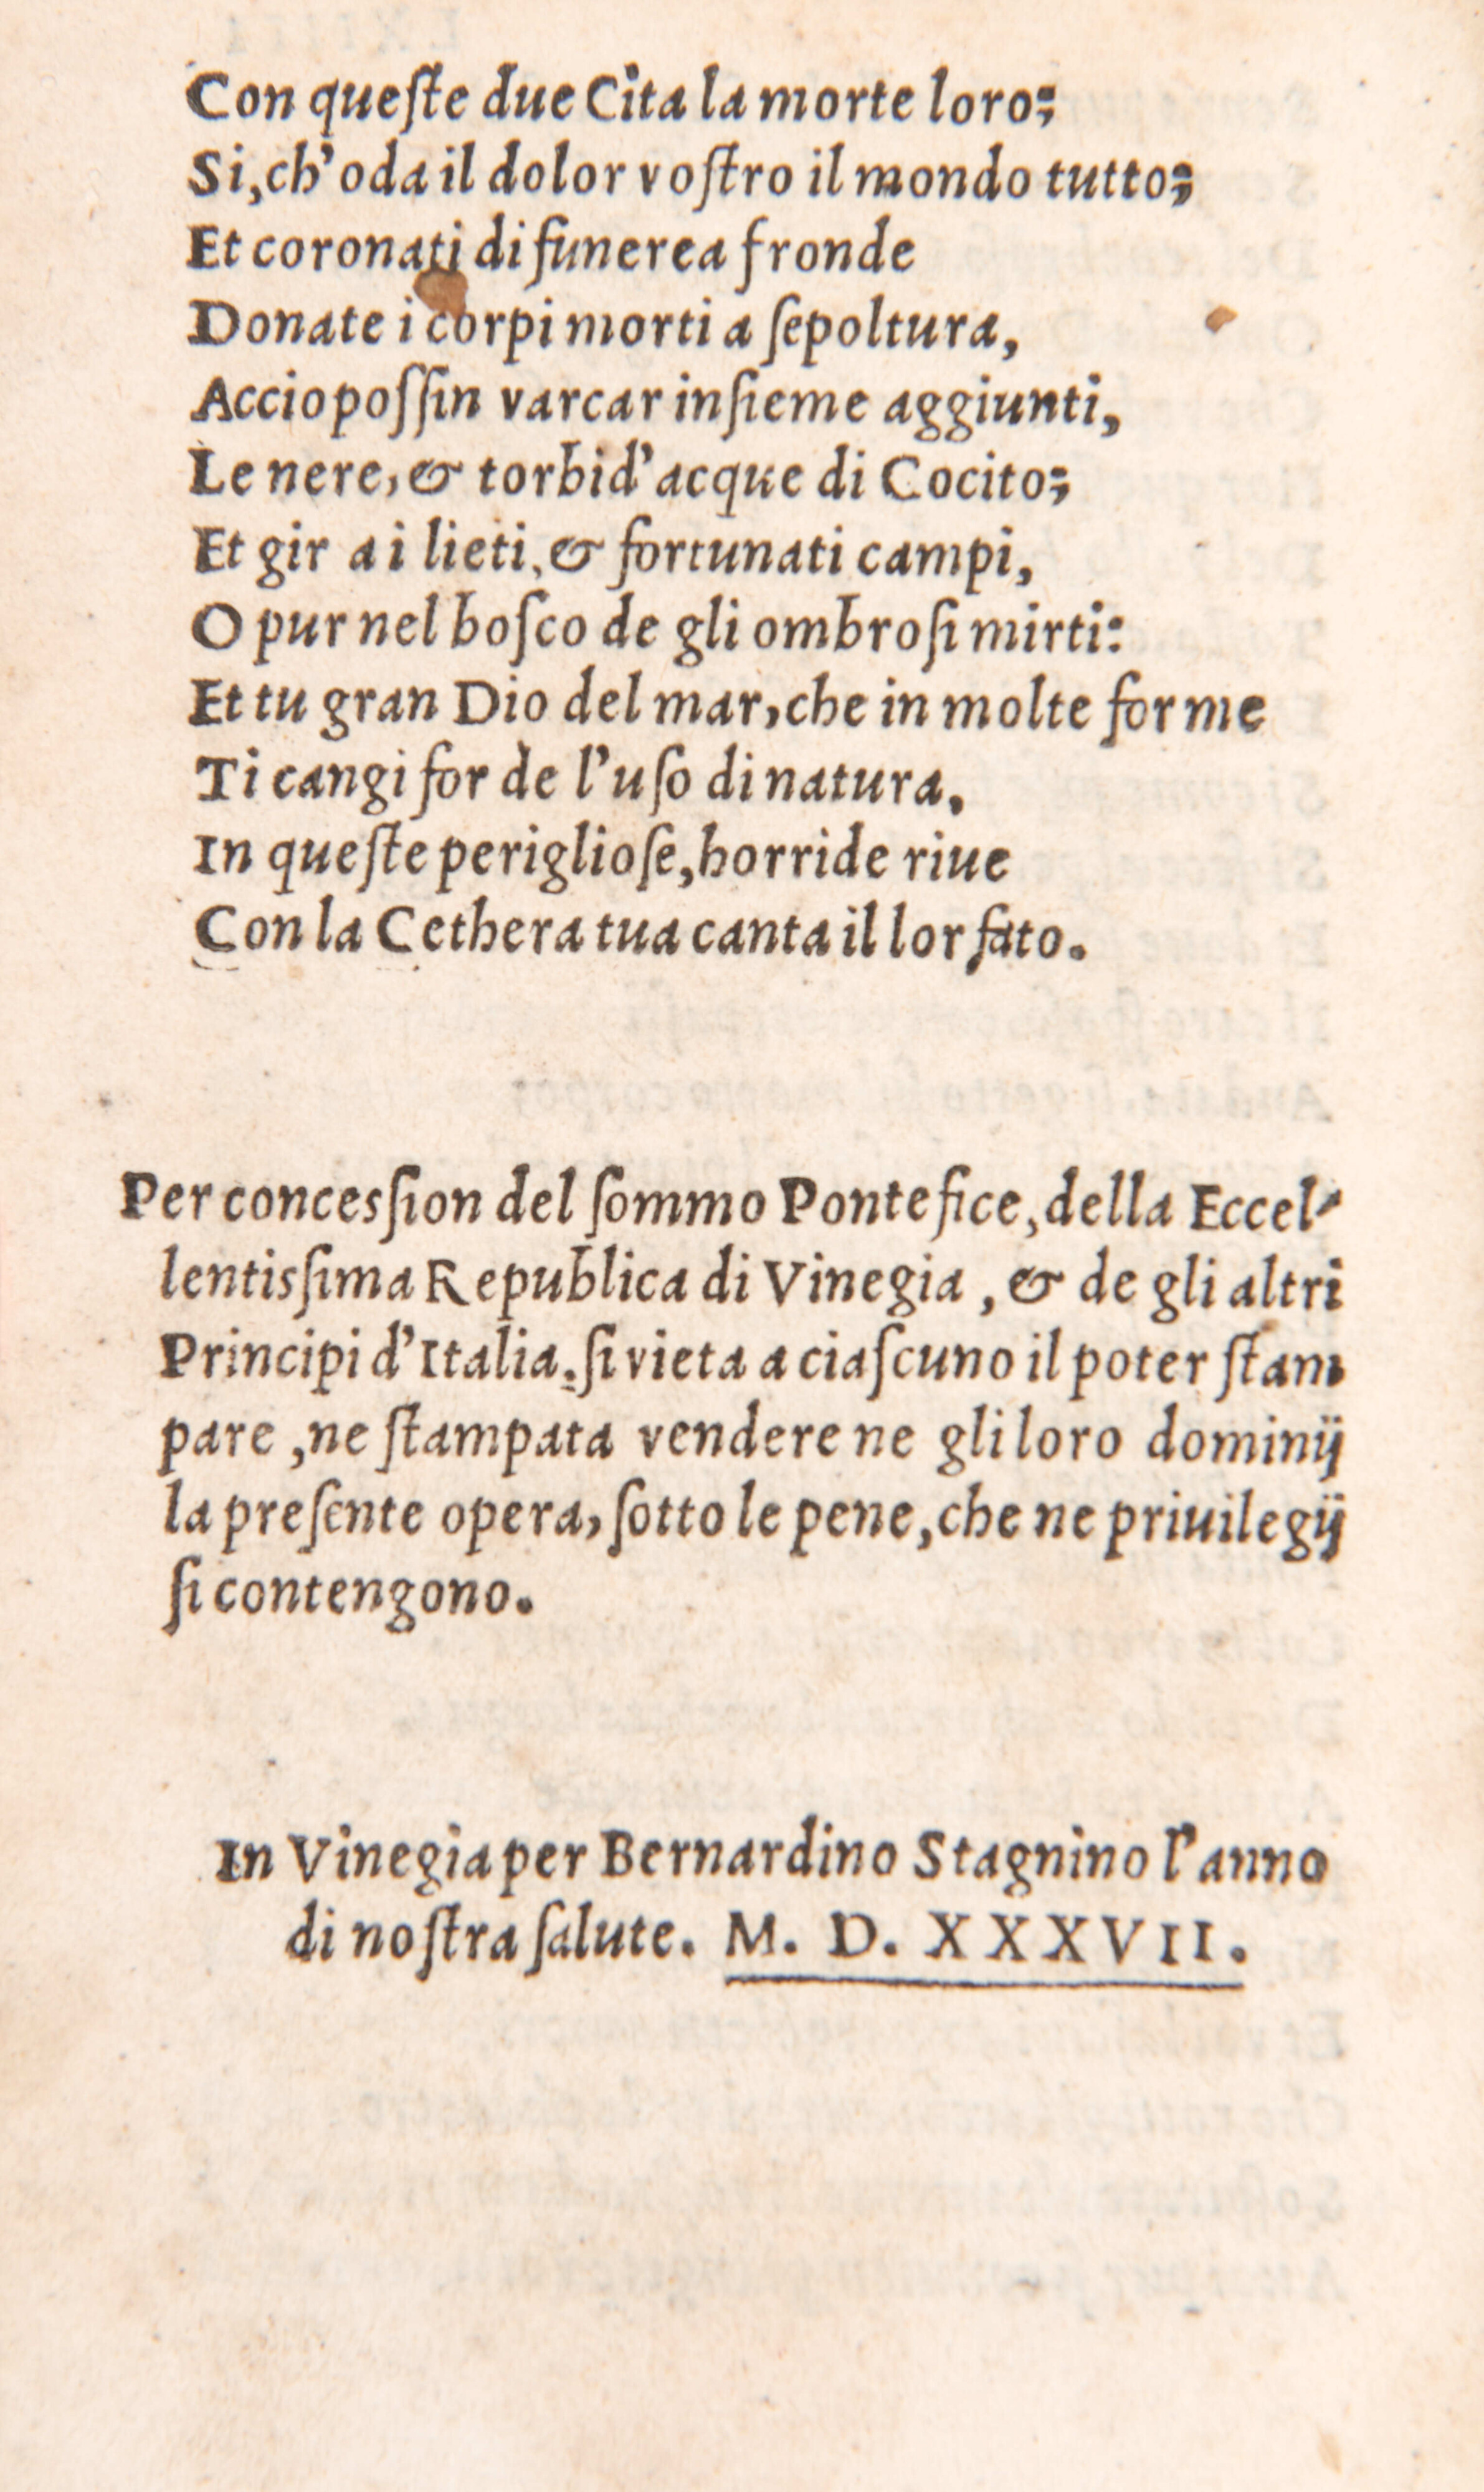 Con queſte due Cita la morte loro;
Si, ch'oda il dolor voſtro il mondo tutto;
Et coronati di funerea fronde
Donate i corpi morti a ſepoltura,
Accio poſſin varcar inſieme aggiunti,
Le nere, & torbid'acque di Cocito;
Et gir a i lieti, & fortunati campi,
O pur nel boſco de gli ombroſi mirti:
Et tu gran Dio del mar, che in molte forme
Ti cangi for de l'uſo di natura,
In queſte periglioſe, horride riue
Con la Cethera tua canta il lor fato.
Per concesſion del ſommo Pontefice, della Eccel-
lentisſima Republica di Vinegia, & de gli altri
Principi d'Italia, ſi vieta a ciaſcuno il poter ſtam
pare, ne ſtampata vendere ne gli loro dominij
la preſente opera, ſotto le pene, che ne priuilegij
ſi contengono.
In Vinegia per Bernardino Stagnino l'anno
di noſtra ſalute. M. D. XXXVII.